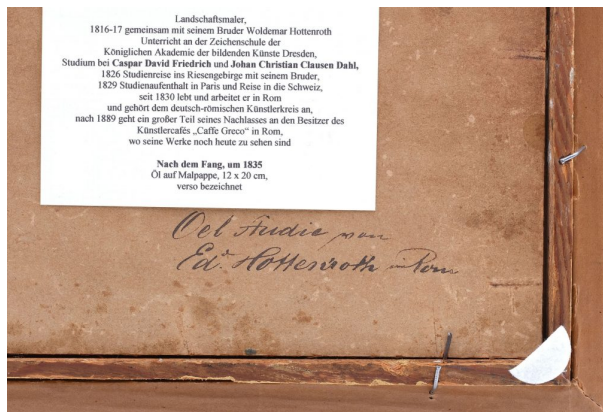 Landschaftsmaler,
1816-17 gemeinsam mit seinem Bruder Woldemar Hottenroth
Unterricht an der Zeichenschule der
Königlichen Akademie der bildenden Künste Dresden,
Studium bei Caspar David Friedrich und Johan Christian Clausen Dahl,
1826 Studienreise ins Riesengebirge mit seinem Bruder,
1829 Studienaufenthalt in Paris und Reise in die Schweiz,
seit 1830 lebt und arbeitet er in Rom
und gehört dem deutsch-römischen Künstlerkreis an,
nach 1889 geht ein großer Teil seines Nachlasses an den Besitzer des
Künstlercafés „Caffe Greco“ in Rom,
wo seine Werke noch heute zu sehen sind
Nach dem Fang, um 1835
Öl auf Malpappe, 12 x 20 cm,
verso bezeichnet
Oel Studie von
Ed. Hottenroth in Rom